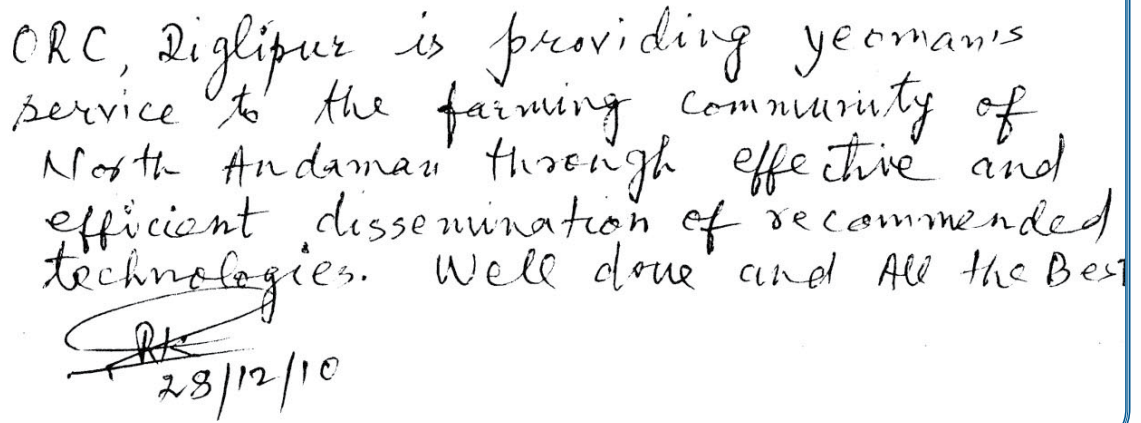 ORC, Diglipur is providing yeoman's
service to the farming community of
North Andaman through effective and
efficient dissemination of recommended
technologies. Well done and All the Best
28/12/10